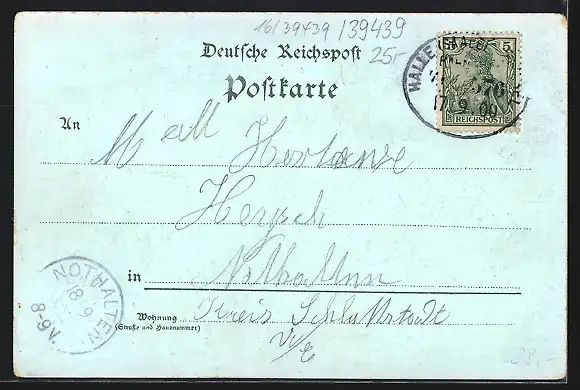 16/39439/39439
Deutsche Reichspost
25,-
Postkarte
HALLE (SAALE)
17.9.00.
5
REICHSPOST
An
Mell Hortanse
Heysch
in Nothalten
NOTHALTEN
18 9
8-9V.
Wohnung
(Straße und Hausnummer)
Kreis Schlettstadt